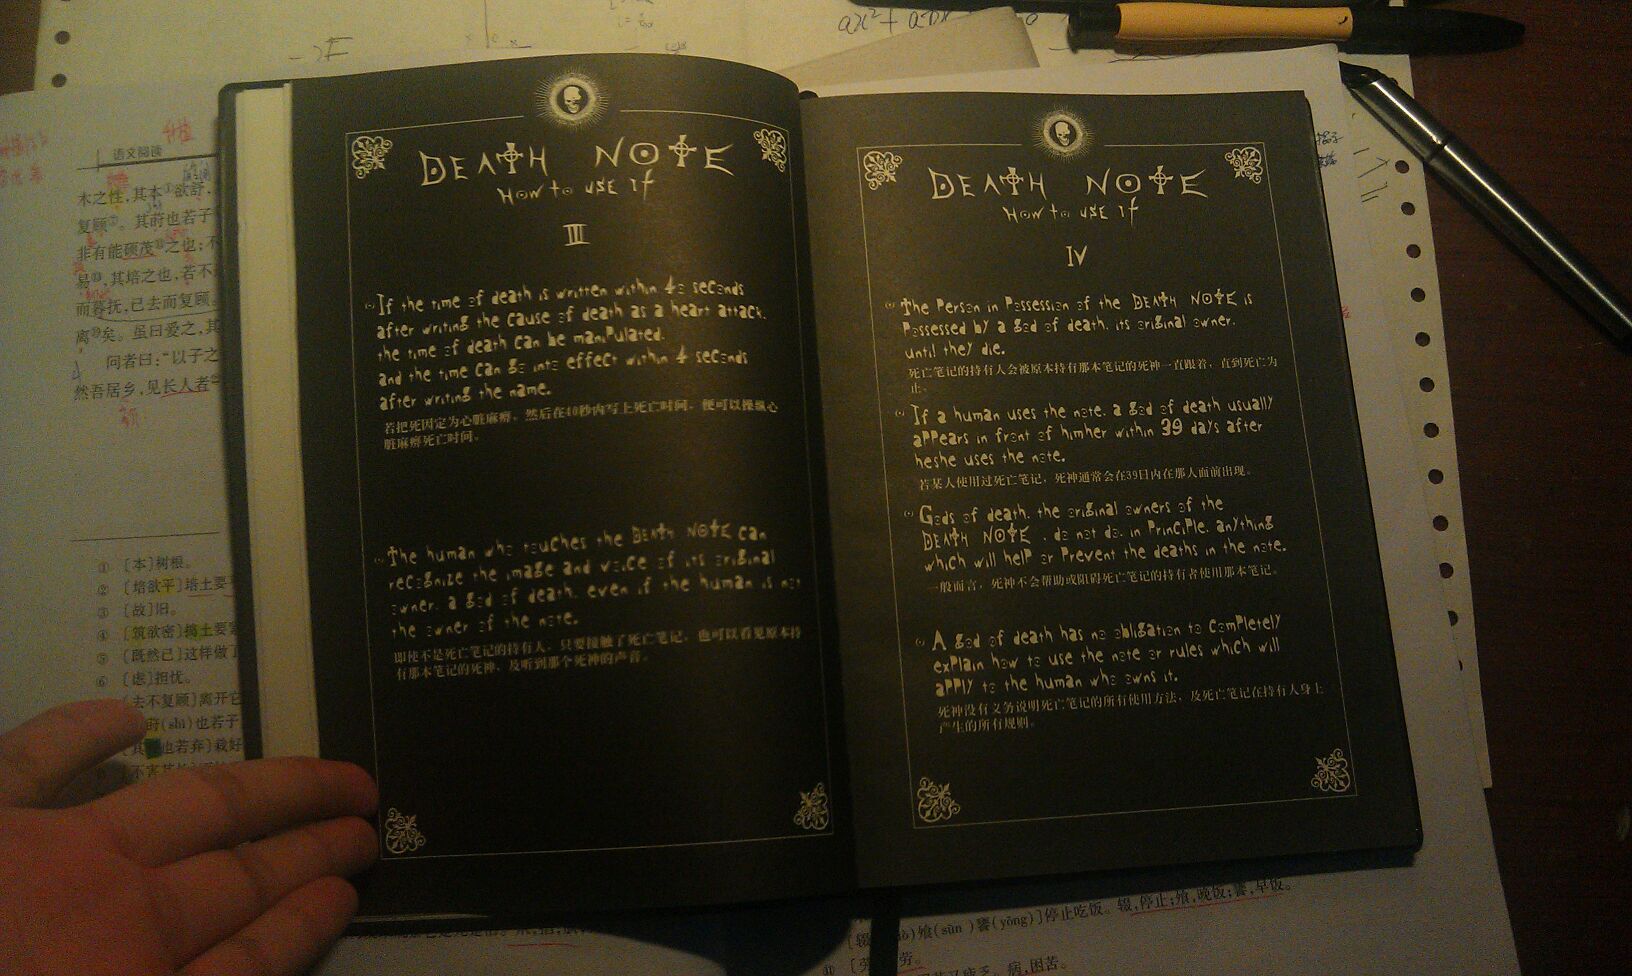 DEATH NOTE
How to use it
III
If the time of death is written within 40 seconds
after writing the cause of death as a heart attack.
the time of death can be manipulated.
and the time can go into effect within 4 seconds
after writing the name.
若把死因定为心脏麻痹，然后在40秒内写上死亡时间，便可以操纵心
脏麻痹死亡时间。
The human who touches the DEATH NOTE can
recognize the image and voice of its original
owner. a god of death. even if the human is not
the owner of the note.
即使不是死亡笔记的持有人，只要接触了死亡笔记，也可以看见原本持
有那本笔记的死神，及听到那个死神的声音。
DEATH NOTE
How to use it
IV
The person in possession of the DEATH NOTE is
possessed by a god of death. its original owner.
until they die.
死亡笔记的持有人会被原本持有那本笔记的死神一直跟着，直到死亡为
止。
If a human uses the note. a god of death usually
appears in front of himher within 39 days after
heshe uses the note.
若某人使用过死亡笔记，死神通常会在39日内在那人面前出现。
Gods of death. the original owners of the
DEATH NOTE . do not do. in principle. anything
which will help or prevent the deaths in the note.
一般而言，死神不会帮助或阻碍死亡笔记的持有者使用那本笔记。
A god of death has no obligation to completely
explain how to use the note or rules which will
apply to the human who owns it.
死神没有义务说明死亡笔记的所有使用方法，及死亡笔记在持有人身上
产生的所有规则。
语文阅读
木之性，其本①欲舒，
复顾⑦。其莳也若子
非有能硕茂⑧之也；不
易⑩，其培之也，若不
而暮抚，已去而复顾。
矣。虽曰爱之，其
问者曰：“以子之
然吾居乡，见长人者
① 〔本〕树根。
② 〔培欲平〕培土要
③ 〔故〕旧。
④ 〔筑欲密〕捣土要
⑤ 〔既然已〕这样做了
⑥ 〔虑〕担忧。
〔去不复顾〕离开它
莳(shì)也若子
也若弃〕栽好
飧(sūn)饔(yōng)〕停止吃饭。辍，停止；飧，晚饭；饔，早饭。
病，困苦。
ax²+